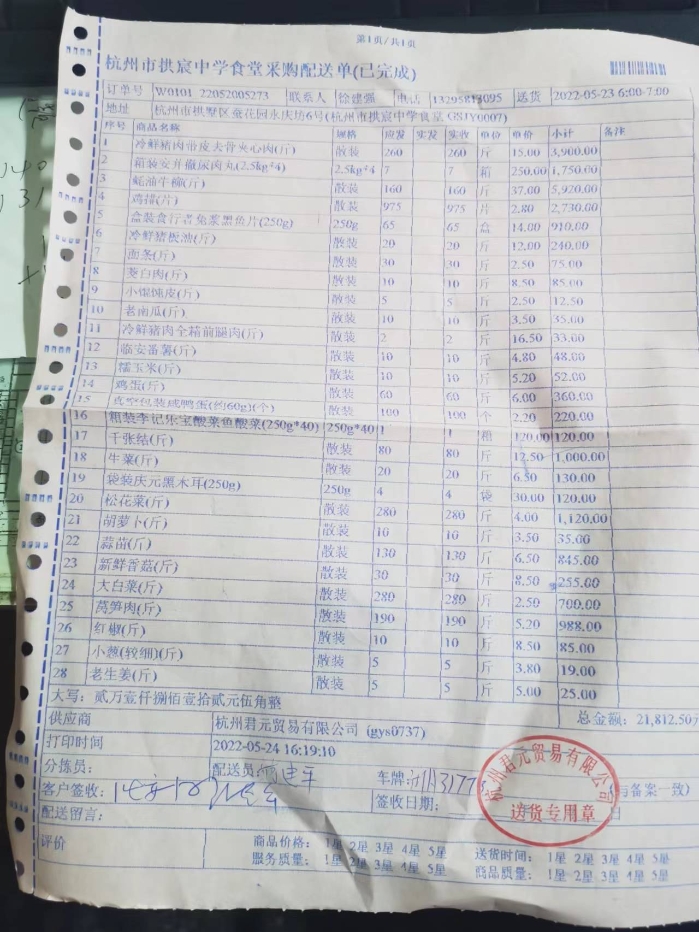 第1页/共1页
杭州市拱宸中学食堂采购配送单(已完成)
订单号 W0101 22052005273 联系人 徐建强 电话 13295813095 送货 2022-05-23 6:00-7:00
地址 杭州市拱墅区蚕花园永庆坊6号(杭州市拱宸中学食堂 GSJY0007)
序号 商品名称 规格 应发 实发 实收 单位 单价 小计 备注
1 冷鲜猪肉带皮去骨夹心肉(斤) 散装 260 260 斤 15.00 3,900.00
2 箱装安井撒尿肉丸(2.5kg*4) 2.5kg*4 7 7 箱 250.00 1,750.00
3 蚝油牛柳(斤) 散装 160 160 斤 37.00 5,920.00
4 鸡排(片) 散装 975 975 片 2.80 2,730.00
5 盒装食行者免浆黑鱼片(250g) 250g 65 65 盒 14.00 910.00
6 冷鲜猪板油(斤) 散装 20 20 斤 12.00 240.00
7 面条(斤) 散装 30 30 斤 2.50 75.00
8 茭白肉(斤) 散装 10 10 斤 8.50 85.00
9 小馄饨皮(斤) 散装 5 5 斤 2.50 12.50
10 老南瓜(斤) 散装 10 10 斤 3.50 35.00
11 冷鲜猪肉全精前腿肉(斤) 散装 2 2 斤 16.50 33.00
12 临安番薯(斤) 散装 10 10 斤 4.80 48.00
13 糯玉米(斤) 散装 10 10 斤 5.20 52.00
14 鸡蛋(斤) 散装 60 60 斤 6.00 360.00
15 真空包装咸鸭蛋(约60g)(个) 散装 100 100 个 2.20 220.00
16 箱装李记乐宝酸菜鱼酸菜(250g*40) 250g*40 1 1 箱 120.00 120.00
17 千张结(斤) 散装 80 80 斤 12.50 1,000.00
18 生菜(斤) 散装 20 20 斤 6.50 130.00
19 袋装庆元黑木耳(250g) 250g 4 4 袋 30.00 120.00
20 松花菜(斤) 散装 280 280 斤 4.00 1,120.00
21 胡萝卜(斤) 散装 10 10 斤 3.50 35.00
22 蒜苗(斤) 散装 130 130 斤 6.50 845.00
23 新鲜香菇(斤) 散装 30 30 斤 8.50 255.00
24 大白菜(斤) 散装 280 280 斤 2.50 700.00
25 莴笋肉(斤) 散装 190 190 斤 5.20 988.00
26 红椒(斤) 散装 10 10 斤 8.50 85.00
27 小葱(较细)(斤) 散装 5 5 斤 3.80 19.00
28 老生姜(斤) 散装 5 5 斤 5.00 25.00
大写：贰万壹仟捌佰壹拾贰元伍角整 总金额：21,812.50元
供应商 杭州君元贸易有限公司 (gys0737)
打印时间 2022-05-24 16:19:10
分拣员： 配送员 车牌： (与备案一致)
客户签收： 签收日期： 日
配送留言：
杭州君元贸易有限公司
送货专用章
评价 商品价格： 1星 2星 3星 4星 5星 送货时间： 1星 2星 3星 4星 5星
服务质量： 1星 2星 3星 4星 5星 商品质量： 1星 2星 3星 4星 5星